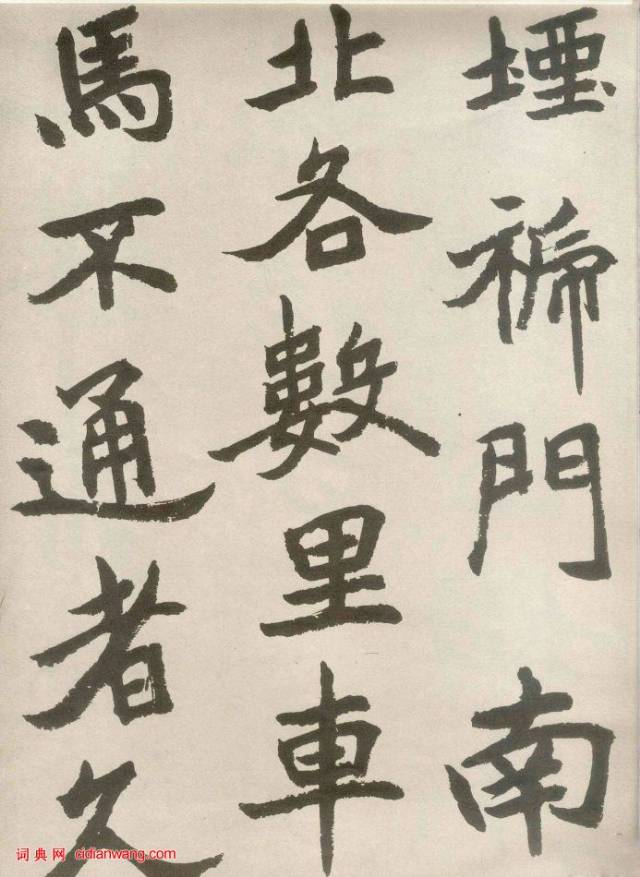 堙門南
北各數里車
馬不通者久
词典网 cidianwang.com